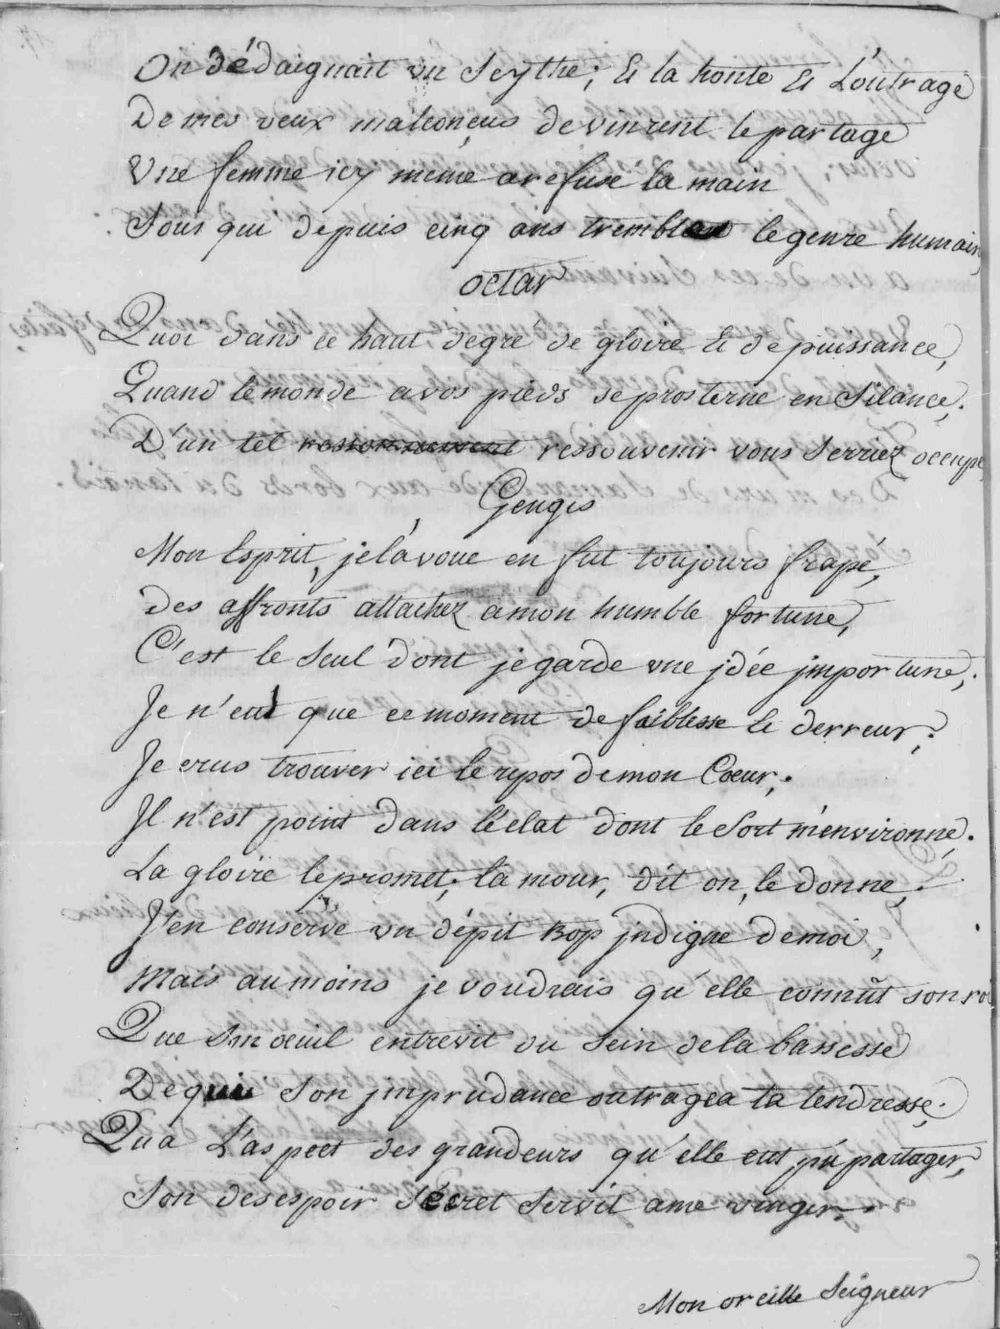 On dédaignait un Scythe; & la honte & L'outrage
De mes veux malconçeus devinrent le partage
Une femme icy même a refusé la main
Sous qui depuis cinq ans trembloit le genre humain,
octar
Quoi dans ce haut degré de gloire & de puissance,
Quand le monde a vos pieds se prosterne en Silance,
D'un tel ressouvenir vous Serriez occupé
Gengis
Mon Esprit, je l'avoue en fut toujours frapé,
des affronts attachez a mon humble fortune,
C'est le Seul dont je garde une jdée jmportune,
Je n'eus que ce moment de faiblesse & derreur;
Je crus trouver ici le repos de mon Coeur;
Jl n'est point dans l'éclat dont le Sort m'environne,
La gloire le promet; la mour, dit on, le donne,
J'en conserve un dépit trop jndigne de moi,
Mais au moins je voudrais qu'elle connût son roi
Que Son oeuil entrevit du Sein de la bassesse
De qui Son jmprudance outragea la tendresse;
Qu'a L'aspect des grandeurs qu'elle eut pû partager,
Son desespoir Sécret Servit a me vinger.
Mon oreille Seigneur